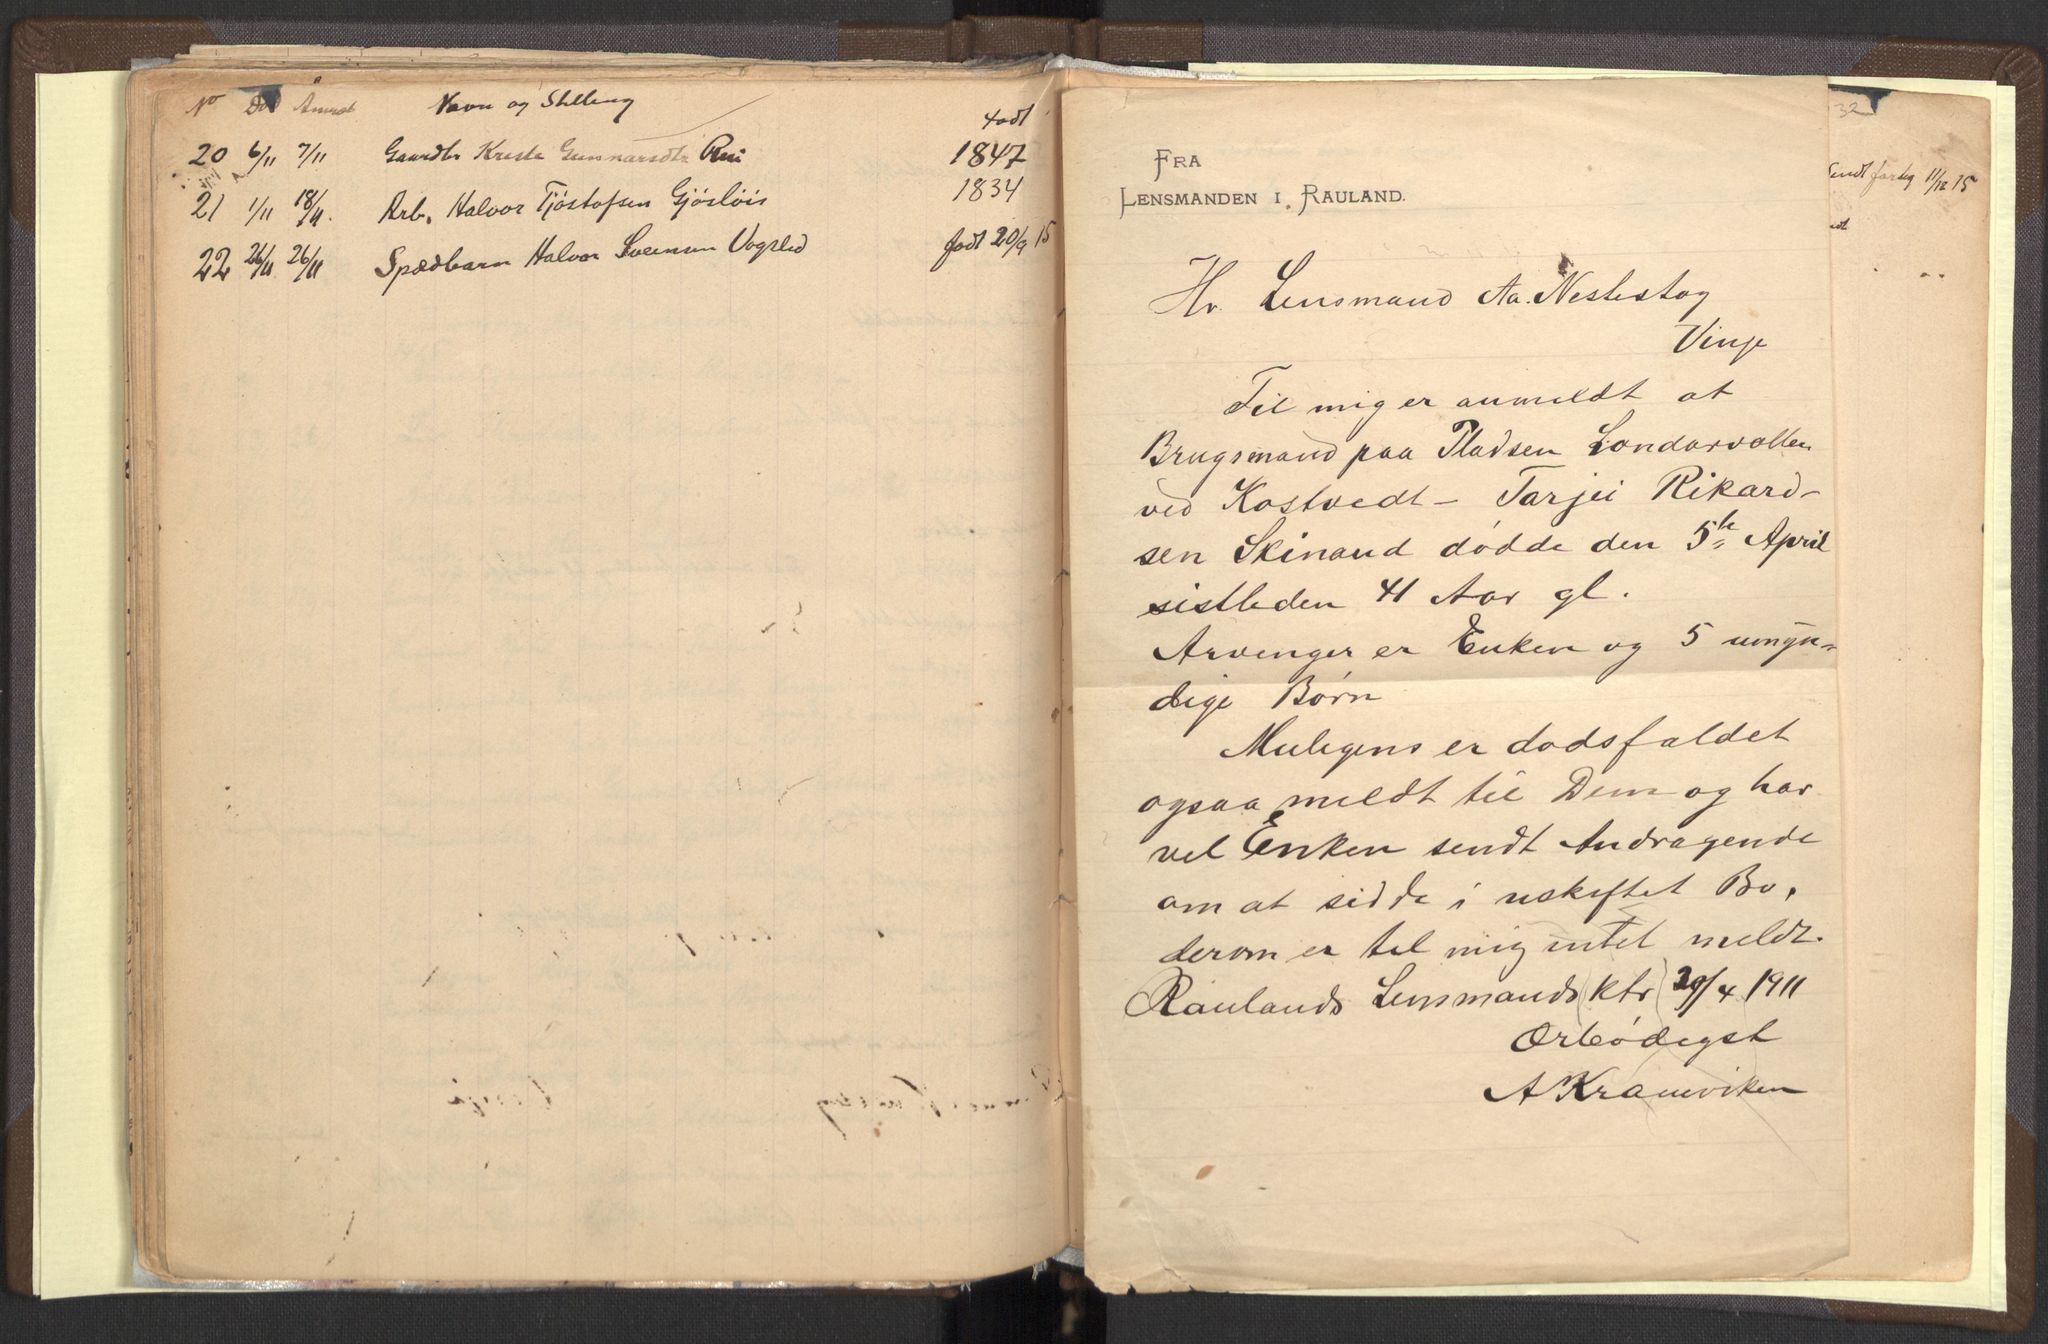 No Død Anmeldt Navn og Stilling født
20 6/11 7/11 Gaardbr Kreste Gunnarsdtr Rui 1847
21 1/11 18/11. Arb. Halvor Tjöstofsen Gjösløis 1834
22 26/11 26/11 Spædbarn Halvor Sveinsen Vogslid født 20/9 15
FRA
LENSMANDEN I. RAULAND.
Hr. Lensmand Aa. Neslestog
Vinje
Til mig er anmeldt at
Brugsmand paa Pladsen Londarvollen
ved Kostvedt – Tarjei Rikard-
sen Skinand dødde den 5te April
sistleden 41 Aar gl.
Arvenger er Enken og 5 umyn-
dige Børn
Muligens er dodsfaldet
ogsaa meldt til Dem og har
vel Enken sendt Andragende
om at sidde i uskiftet Bo,
derom er til mig intet meldt.
Raulands Lensmandsktr 29/4 1911
Ærbödigst
A Kramviken
32
Sendt fortegn 11/12 15